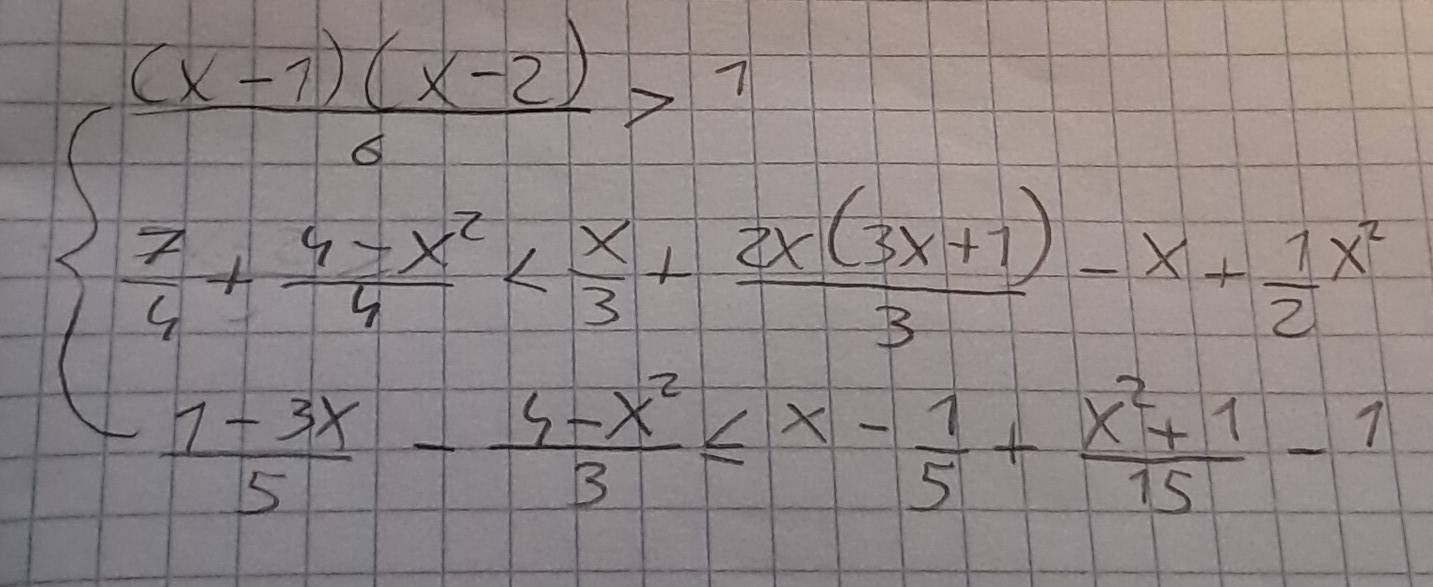 (x-1)(x-2)/6 > 1
7/4 + (4-x²)/4 < x/3 + 2x(3x+1)/3 - x + 1/2 x²
(1-3x)/5 - (4-x²)/3 ≤ x - 1/5 + (x²+1)/15 - 1